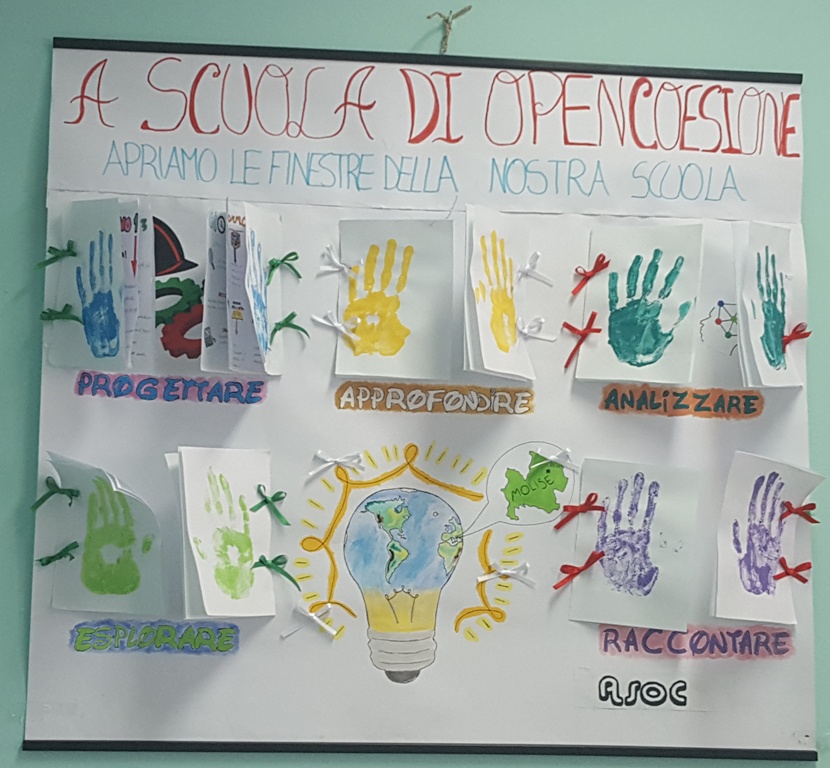 A SCUOLA DI OPENCOESIONE
APRIAMO LE FINESTRE DELLA NOSTRA SCUOLA
PROGETTARE
APPROFONDIRE
ANALIZZARE
MOLISE
ESPLORARE
RACCONTARE
ASOC